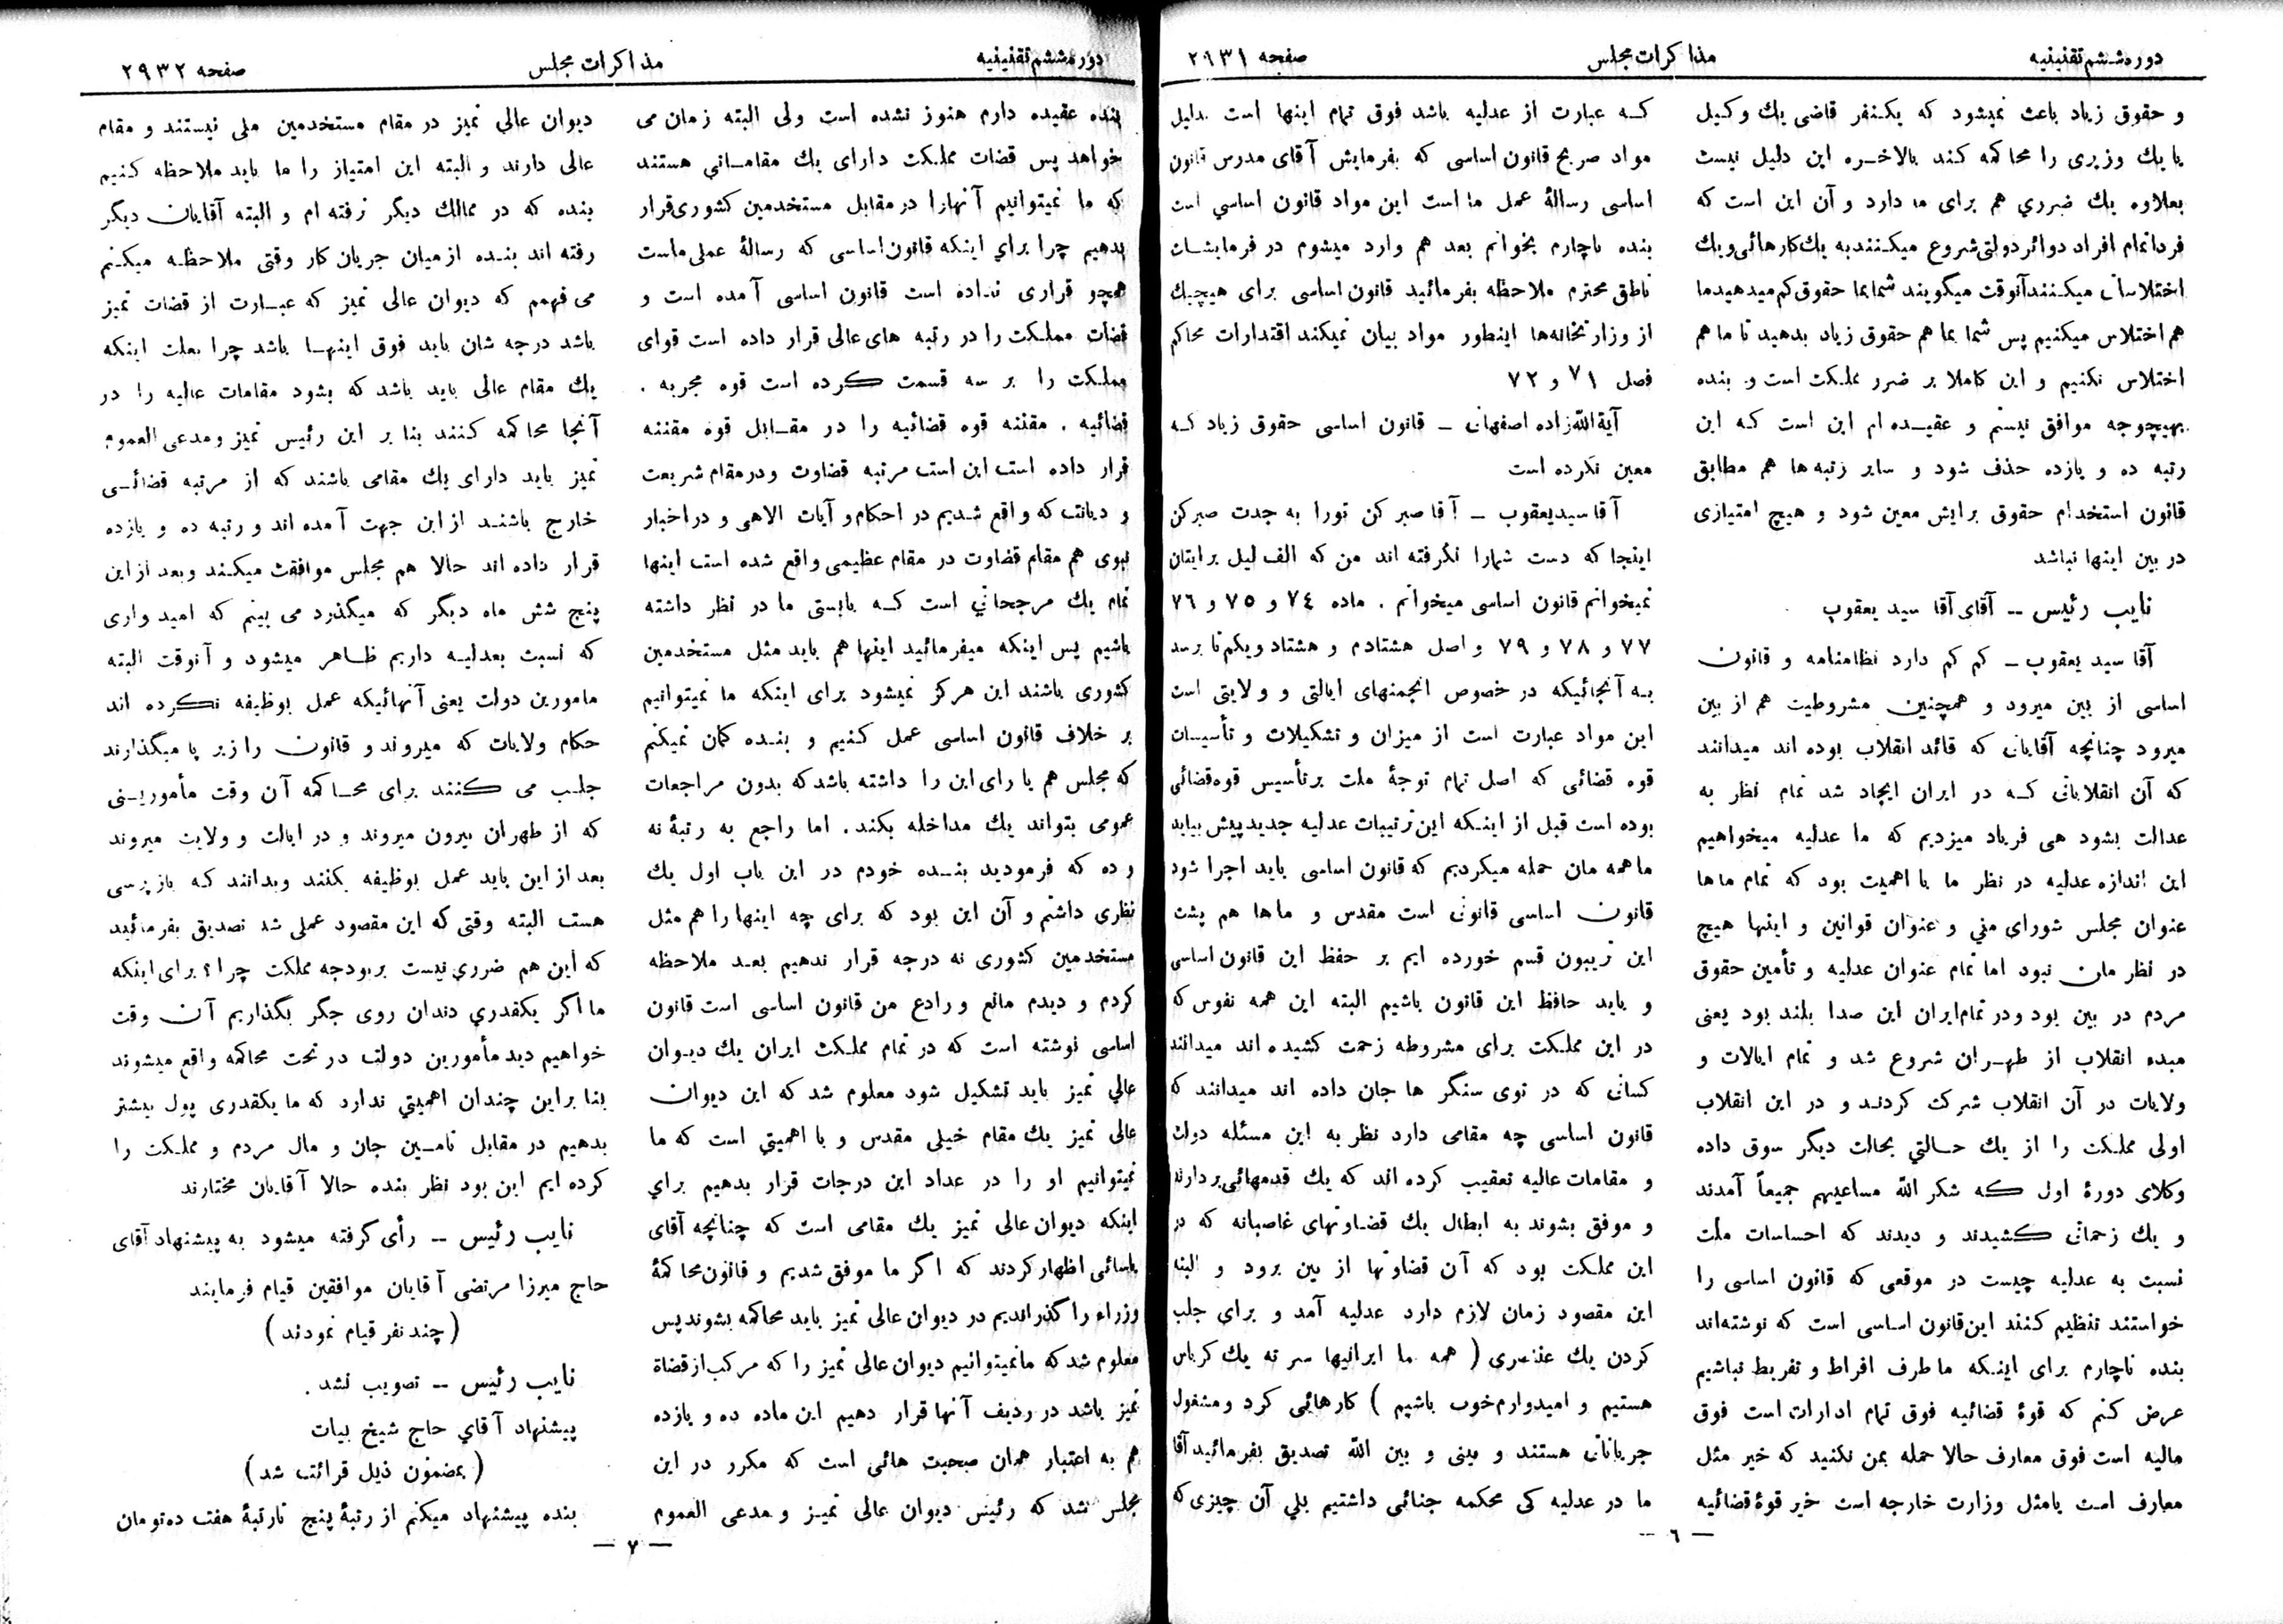 دوره ششم تقنینیه مذاکرات مجلس صفحه ۲۹۳۱
و حقوق زیاد باعث نمیشود که یکنفر قاضی یك وکیل
یا یك وزیری را محاکمه کند بالاخره این دلیل نیست
بعلاوه یك ضرري هم برای ما دارد و آن این است که
فردا تمام افراد دوائر دولتی شروع میکنند به یك کارهائی و یك
اختلاساتی میکنند آنوقت میگویند شما بما حقوق کم میدهید ما
هم اختلاس میکنیم پس شما بما هم حقوق زیاد بدهید تا ما هم
اختلاس نکنیم و این کاملا بر ضرر مملکت است و بنده
بهیچوجه موافق نیستم و عقیده ام این است که این
رتبه ده و یازده حذف شود و سایر رتبه ها هم مطابق
قانون استخدام حقوق برایش معین شود و هیچ امتیازی
در بین اینها نباشد
نایب رئیس -- آقای آقا سید یعقوب
آقا سید یعقوب - کم کم دارد نظامنامه و قانون
اساسی از بین میرود و همچنین مشروطیت هم از بین
میرود چنانچه آقایانی که قائد انقلاب بوده اند میدانند
که آن انقلاباتی که در ایران ایجاد شد تمام نظر به
عدالت بشود هی فریاد میزدیم که ما عدلیه میخواهیم
این اندازه عدلیه در نظر ما با اهمیت بود که تمام ماها
عنوان مجلس شورای ملي و عنوان قوانین و اینها هیچ
در نظر مان نبود اما تمام عنوان عدلیه و تأمین حقوق
مردم در بین بود و در تمام ایران این صدا بلند بود یعنی
مبدء انقلاب از طهران شروع شد و تمام ایالات و
ولایات در آن انقلاب شرکت کردند و در این انقلاب
اولی مملکت را از یك حالتي بحالت دیگر سوق داده
وکلای دورهٔ اول که شکر الله مساعیهم جمیعاً آمدند
و یك زحماتی کشیدند و دیدند که احساسات ملت
نسبت به عدلیه چیست در موقعی که قانون اساسی را
خواستند تنظیم کنند این قانون اساسی است که نوشته‌اند
بنده ناچارم برای اینکه ما طرف افراط و تفریط نباشیم
عرض کنم که قوهٔ قضائیه فوق تمام ادارات است فوق
مالیه است فوق معارف حالا حمله بمن نکنید که خیر مثل
معارف است یا مثل وزارت خارجه است خیر قوهٔ قضائیه
که عبارت از عدلیه باشد فوق تمام اینها است بدلیل
مواد صریح قانون اساسی که بفرمایش آقای مدرس قانون
اساسی رسالهٔ عمل ما است این مواد قانون اساسي است
بنده ناچارم بخوانم بعد هم وارد میشوم در فرمایشات
ناطق محترم ملاحظه بفرمائید قانون اساسی برای هیچیك
از وزارتخانه‌ها اینطور مواد بیان نمیکند اقتدارات محاکم
فصل ۷۱ و ۷۲
آیة الله زاده اصفهانی - قانون اساسی حقوق زیاد که
معین نکرده است
آقا سید یعقوب - آقا صبر کن تورا به جدت صبر کن
اینجا که دست شمارا نگرفته اند من که الف لیل برایتان
نمیخوانم قانون اساسی میخوانم . ماده ۷٤ و ۷٥ و ۷٦
۷۷ و ۷۸ و ۷۹ و اصل هشتادم و هشتاد و یکم تا برسد
به آنجائیکه در خصوص انجمنهای ایالتی و ولایتی است
این مواد عبارت است از میزان و تشکیلات و تأسیسات
قوه قضائی که اصل تمام توجهٔ ملت بر تأسیس قوه قضائی
بوده است قبل از اینکه این ترتیبات عدلیه جدید پیش بیاید
ما همه مان حمله میکردیم که قانون اساسی باید اجرا شود
قانون اساسی قانونی است مقدس و ماها هم پشت
این تریبون قسم خورده ایم بر حفظ این قانون اساسی
و باید حافظ این قانون باشیم البته این همه نفوس که
در این مملکت برای مشروطه زحمت کشیده اند میدانند
کسانی که در توی سنگر ها جان داده اند میدانند که
قانون اساسی چه مقامی دارد نظر به این مسئله دولت
و مقامات عالیه تعقیب کرده اند که یك قدمهائی بردارند
و موفق بشوند به ابطال یك قضاوتهای غاصبانه که در
این مملکت بود که آن قضاوتها از بین برود و البته
این مقصود زمان لازم دارد عدلیه آمد و برای جلب
کردن یك عنصری ( همه ما ایرانیها سر ته یك کرباس
هستیم و امیدوارم خوب باشیم ) کارهائی کرد و مشغول
جریاناتی هستند و بینی و بین الله تصدیق بفرمائید آقا
ما در عدلیه کی محکمه جنائی داشتیم بلي آن چیزی که
— ٦ —
دوره ششم تقنینیه مذاکرات مجلس صفحه ۲۹۳۲
بنده عقیده دارم هنوز نشده است ولی البته زمان می
خواهد پس قضات مملکت دارای یك مقاماتي هستند
که ما نمیتوانیم آنهارا در مقابل مستخدمین کشوری قرار
بدهیم چرا براي اینکه قانون اساسی که رسالهٔ عملی ماست
همچو قراری نداده است قانون اساسی آمده است و
قضات مملکت را در رتبه های عالی قرار داده است قوای
مملکت را بر سه قسمت کرده است قوه مجریه .
قضائیه . مقننه قوه قضائیه را در مقابل قوه مقننه
قرار داده است این است مرتبه قضاوت و در مقام شریعت
و دیانت که واقع شدیم در احکام و آیات الاهی و در اخبار
نبوی هم مقام قضاوت در مقام عظیمی واقع شده است اینها
تمام یك مرجحاتي است که بایستی ما در نظر داشته
باشیم پس اینکه میفرمائید اینها هم باید مثل مستخدمین
کشوری باشند این هرگز نمیشود برای اینکه ما نمیتوانیم
بر خلاف قانون اساسی عمل کنیم و بنده گمان نمیکنم
که مجلس هم یارای این را داشته باشد که بدون مراجعات
عمومی بتواند یك مداخله بکند . اما راجع به رتبهٔ نه
و ده که فرمودید بنده خودم در این باب اول یك
نظری داشتم و آن این بود که برای چه اینها را هم مثل
مستخدمین کشوری نه درجه قرار ندهیم بعد ملاحظه
کردم و دیدم مانع و رادع من قانون اساسی است قانون
اساسی نوشته است که در تمام مملکت ایران یك دیوان
عالي تمیز باید تشکیل شود معلوم شد که این دیوان
عالی تمیز یك مقام خیلی مقدس و با اهمیتي است که ما
نمیتوانیم او را در عداد این درجات قرار بدهیم براي
اینکه دیوان عالی تمیز یك مقامی است که چنانچه آقای
یاسائی اظهار کردند که اگر ما موفق شدیم و قانون محاکمهٔ
وزراء را گذراندیم در دیوان عالی تمیز باید محاکمه بشوند پس
معلوم شد که ما نمیتوانیم دیوان عالی تمیز را که مرکب از قضاة
تمیز باشد در ردیف آنها قرار دهیم این ماده ده و یازده
هم به اعتبار همان صحبت هائی است که مکرر در این
مجلس شد که رئیس دیوان عالی تمیز و مدعی العموم
دیوان عالي تمیز در مقام مستخدمین ملی نیستند و مقام
عالی دارند و البته این امتیاز را ما باید ملاحظه کنیم
بنده که در ممالك دیگر نرفته ام و البته آقایان دیگر
رفته اند بنده از میان جریان کار وقتی ملاحظه میکنم
می فهمم که دیوان عالی تمیز که عبارت از قضات تمیز
باشد درجه شان باید فوق اینها باشد چرا بعلت اینکه
یك مقام عالی باید باشد که بشود مقامات عالیه را در
آنجا محاکمه کنند بنا بر این رئیس تمیز و مدعی العموم
تمیز باید دارای یك مقامی باشند که از مرتبه قضائی
خارج باشند از این جهت آمده اند و رتبه ده و یازده
قرار داده اند حالا هم مجلس موافقت میکند و بعد از این
پنج شش ماه دیگر که میگذرد می بینم که امیدواری
که نسبت بعدلیه داریم ظاهر میشود و آنوقت البته
مامورین دولت یعنی آنهائیکه عمل بوظیفه نکرده اند
حکام ولایات که میروند و قانون را زیر پا میگذارند
جلب می کنند برای محاکمه آن وقت مأمورینی
که از طهران بیرون میروند و در ایالت و ولایت میروند
بعد از این باید عمل بوظیفه بکنند و بدانند که بازپرسی
هست البته وقتی که این مقصود عملی شد تصدیق بفرمائید
که این هم ضرري نیست بر بودجه مملکت چرا ؟ برای اینکه
ما اگر یکقدري دندان روی جگر بگذاریم آن وقت
خواهیم دید مأمورین دولت در تحت محاکمه واقع میشوند
بنا بر این چندان اهمیتي ندارد که ما یکقدری پول بیشتر
بدهیم در مقابل تامین جان و مال مردم و مملکت را
کرده ایم این بود نظر بنده حالا آقایان مختارند
نایب رئیس -- رأی گرفته میشود به پیشنهاد آقای
حاج میرزا مرتضی آقایان موافقین قیام فرمایند
( چند نفر قیام نمودند )
نایب رئیس -- تصویب نشد .
پیشنهاد آقاي حاج شیخ بیات
( بمضمون ذیل قرائت شد )
بنده پیشنهاد میکنم از رتبهٔ پنج تا رتبهٔ هفت ده تومان
— ۷ —